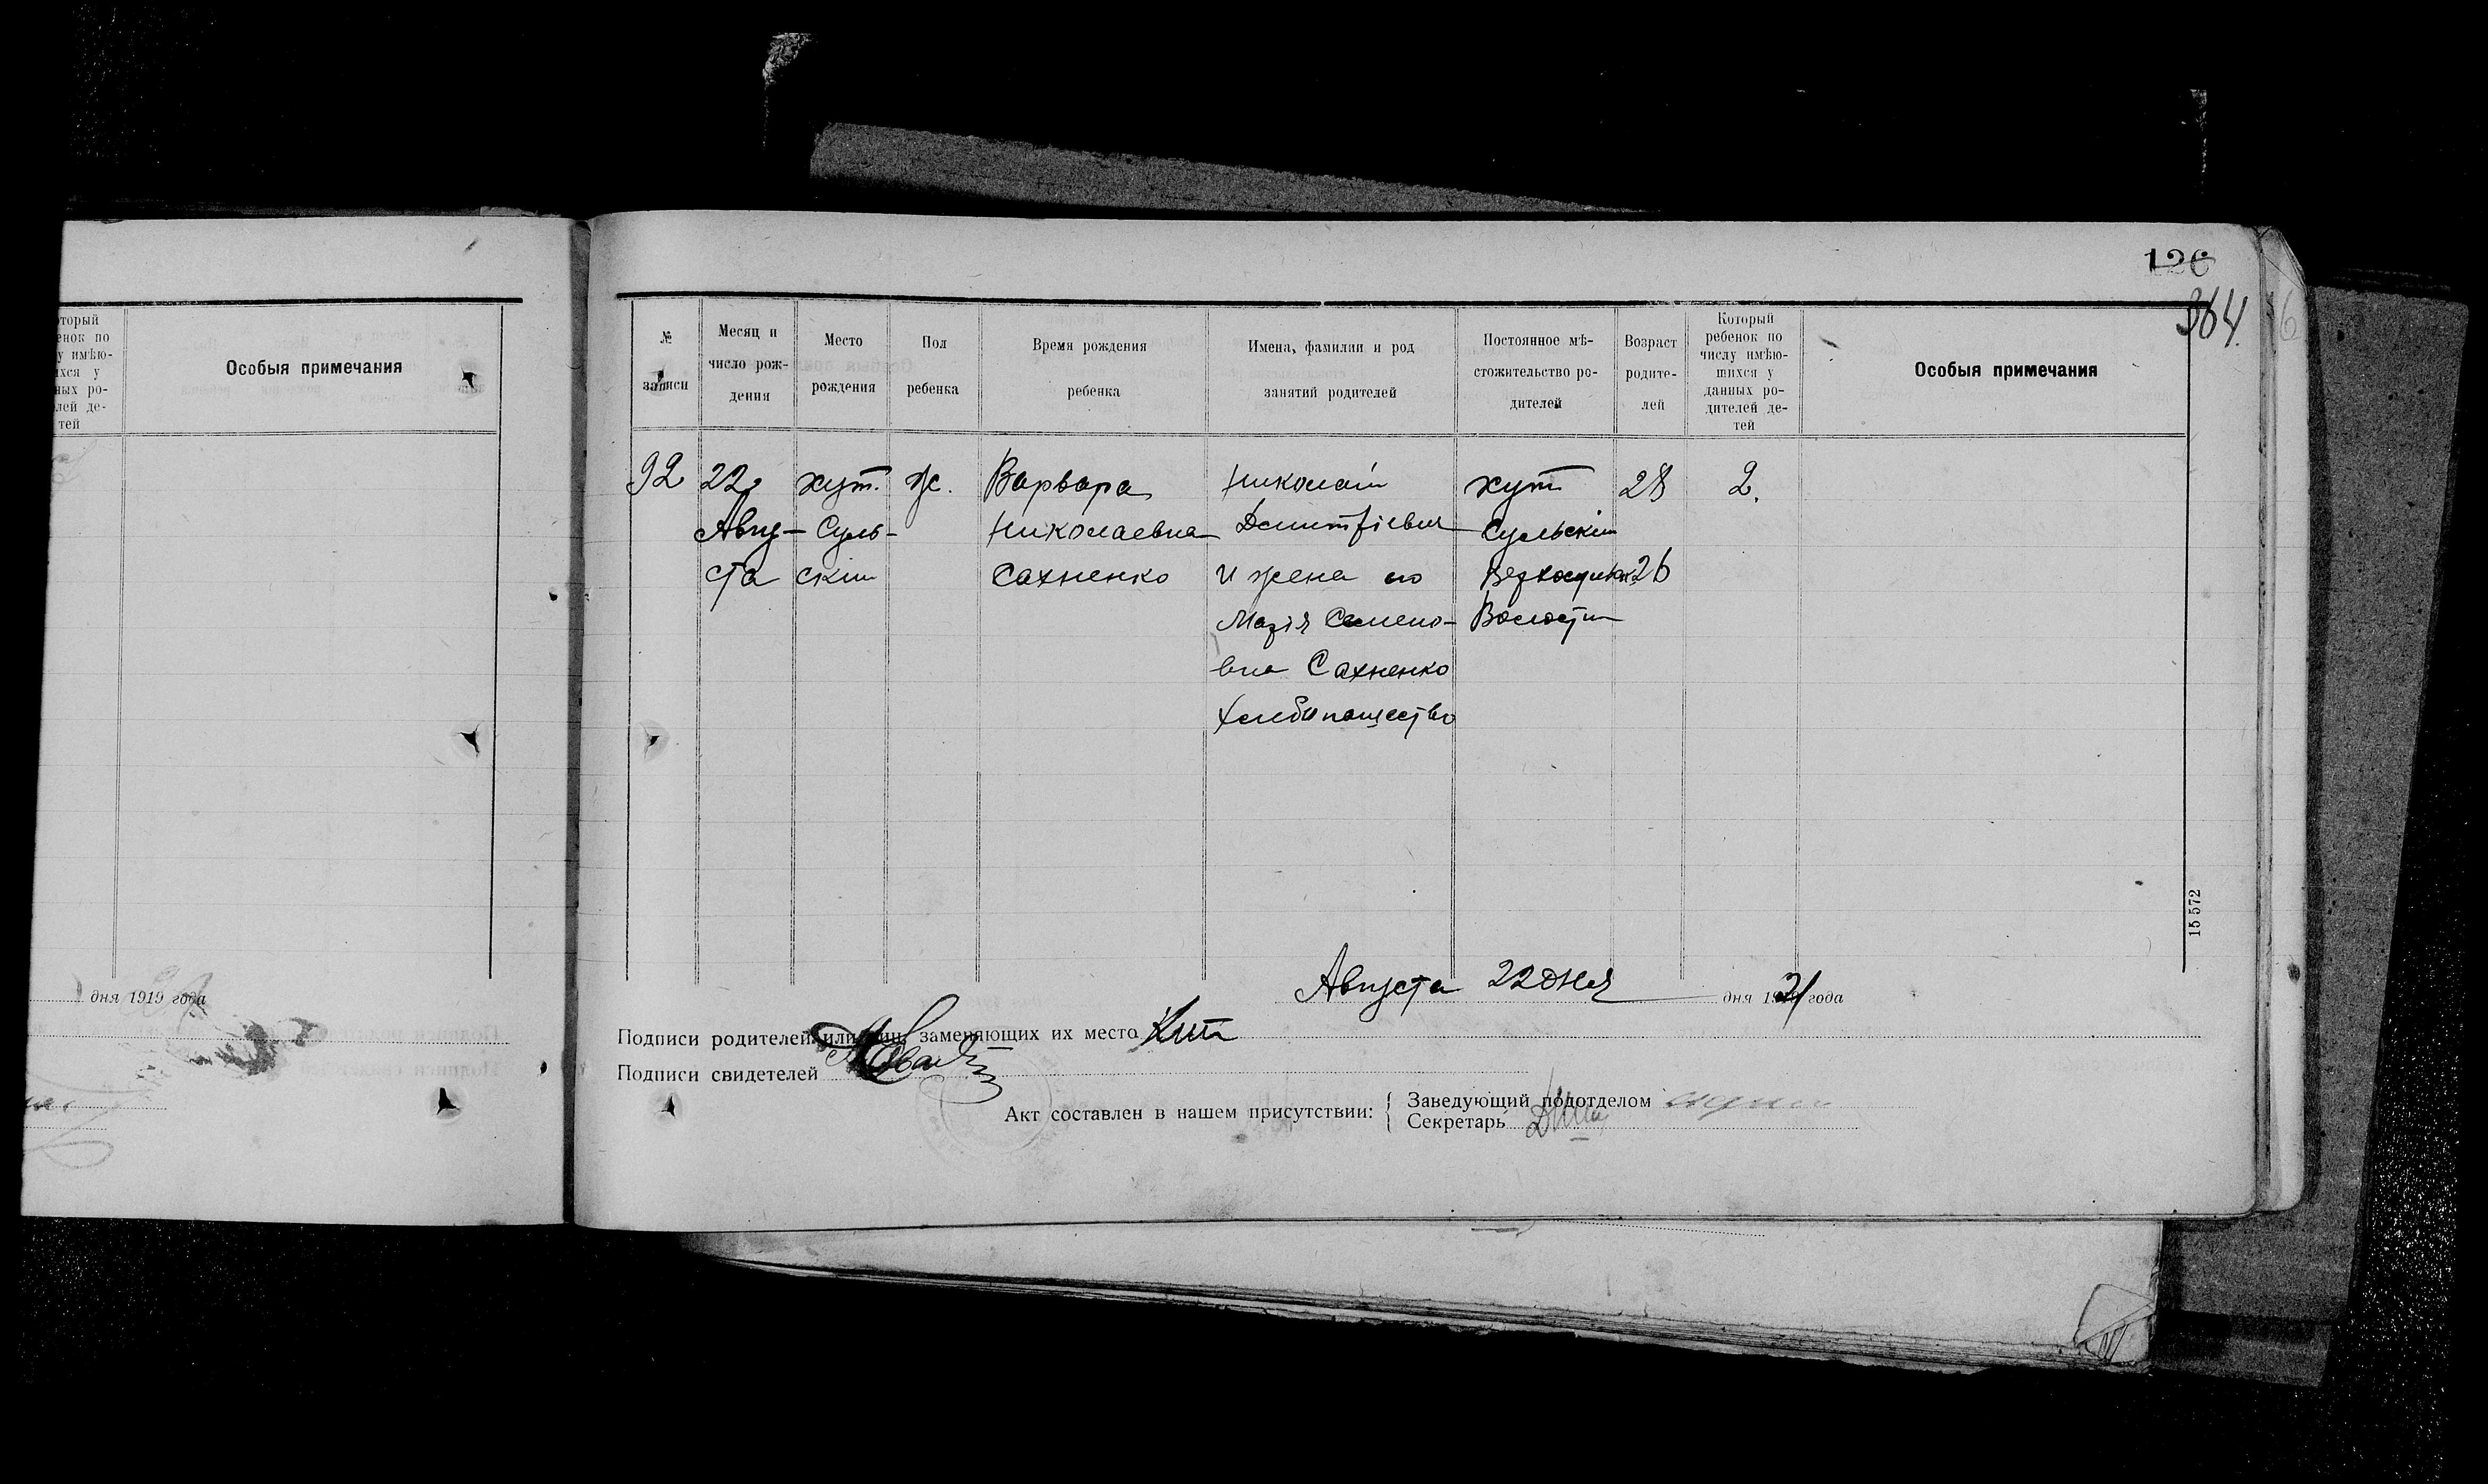 126
364.
6
оторый
енок по
у имѣю-
ихся у
ных ро-
лей де-
тей
Особыя примечания
дня 1919 года
№ записи
Месяц и число рож- дения
Место рождения
Пол ребенка
Время рождения ребенка
Имена, фамилии и род занятий родителей
Постоянное мѣ- стожительство ро- дителей
Возраст родите- лей
Который ребенок по числу имѣю- щихся у данных ро- дителей де- тей
Особыя примечания
92 22 хут. ж. Варвара Николай хут 28 2.
Авгу- Суль- Николаевна Демитріевич Сульскій
ста скій Сахненко и жена его 26
Марія Семено- Волости
вна Сахненко
Хлебопашество
15 572
Августа 22 дня дня 1921 года
Подписи родителей или лиц, заменяющих их место
Подписи свидетелей
Акт составлен в нашем присутствии:
Заведующий подотделом
Секретарь